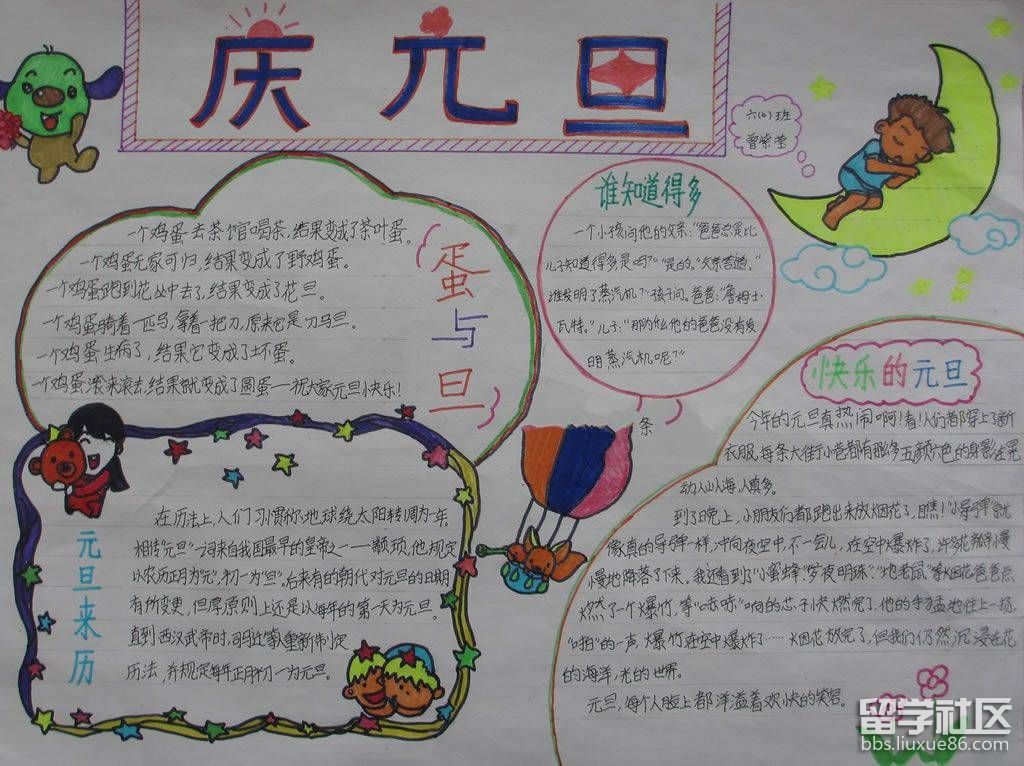 庆元旦
六(4)班
曾紫莹
一个鸡蛋去茶馆喝茶,结果变成了茶叶蛋。
一个鸡蛋无家可归,结果变成了野鸡蛋。
一个鸡蛋跑到花丛中去了,结果变成了花旦。
一个鸡蛋骑着一匹马,拿着一把刀,原来它是刀马旦。
一个鸡蛋生病了,结果它变成了坏蛋。
一个鸡蛋滚来滚去,结果就变成了圆蛋——祝大家元旦快乐!
蛋与旦
谁知道得多
一个小孩问他的父亲:“爸爸总是比
儿子知道得多是吗?”“是的。”父亲答道。”
谁发明了蒸汽机?”孩子问。爸爸:“詹姆士·
瓦特。”儿子:“那为什么他的爸爸没有发
明蒸汽机呢?”
元旦来历
在历法上,人们习惯称地球绕太阳转一周为一年。
相传“元旦”一词来自我国最早的皇帝之一——颛顼,他规定
以农历正月为“元”,初一为“旦”。后来有的朝代对元旦的日期
有所变更,但原则上还是以每年的第一天为元旦。
直到西汉武帝时,司马迁等重新制定
历法,并规定每年正月初一为元旦。
快乐的元旦
今年的元旦真热闹啊!看!人们都穿上了新
衣服,每条大街小巷都有那多五颜六色的身影在晃
条
动,人山人海,人真多。
到了晚上,小朋友们都跑出来放烟花了,瞧!“小导弹”就
像真的导弹一样,冲向夜空中,不一会儿,在空中爆炸了,许多花瓣慢
慢地降落了下来,我还看到了“小蜜蜂”“夜明珠”“地老鼠”等烟花,爸爸点
燃了一个爆竹,等“咝咝”响的芯子快燃完了,他的手猛地往上一扬,
“啪”的一声,爆竹在空中爆炸了……烟花放完了,但我们仍然沉浸在花
的海洋,光的世界。
元旦,每个人脸上都洋溢着欢快的笑容。
留学社区
bbs.liuxue86.com